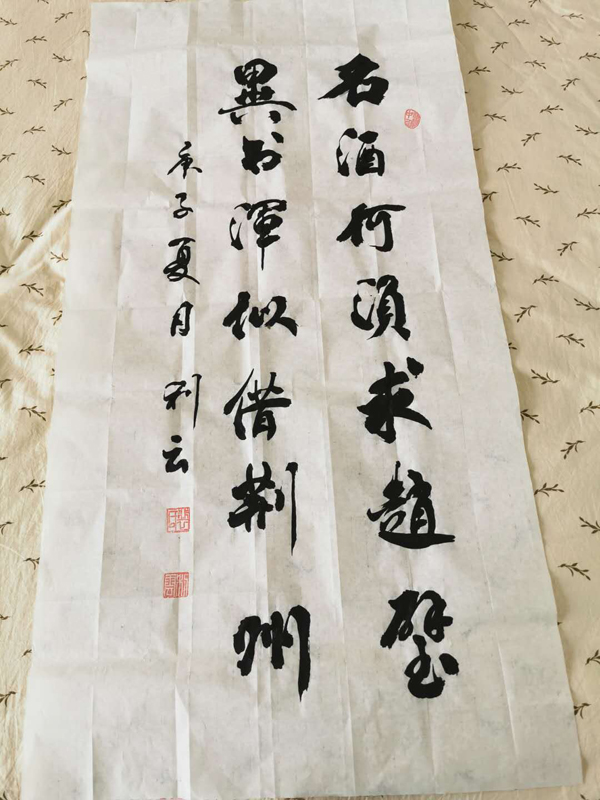 名酒何須求趙璧
異书渾似借荆州
庚子夏月 利云